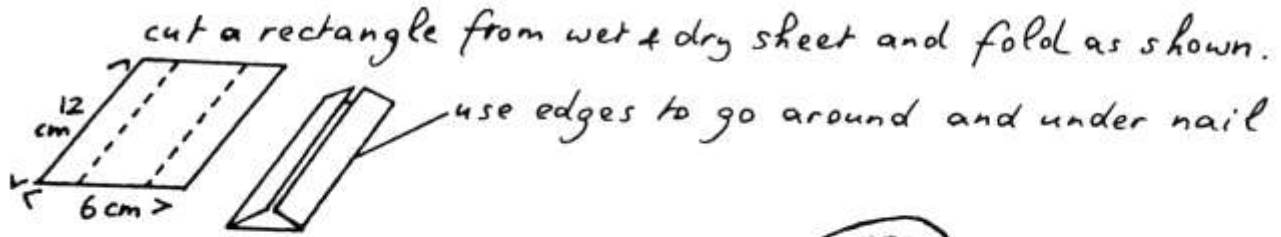 cut a rectangle from wet & dry sheet and fold as shown.
12
cm
use edges to go around and under nail
6 cm